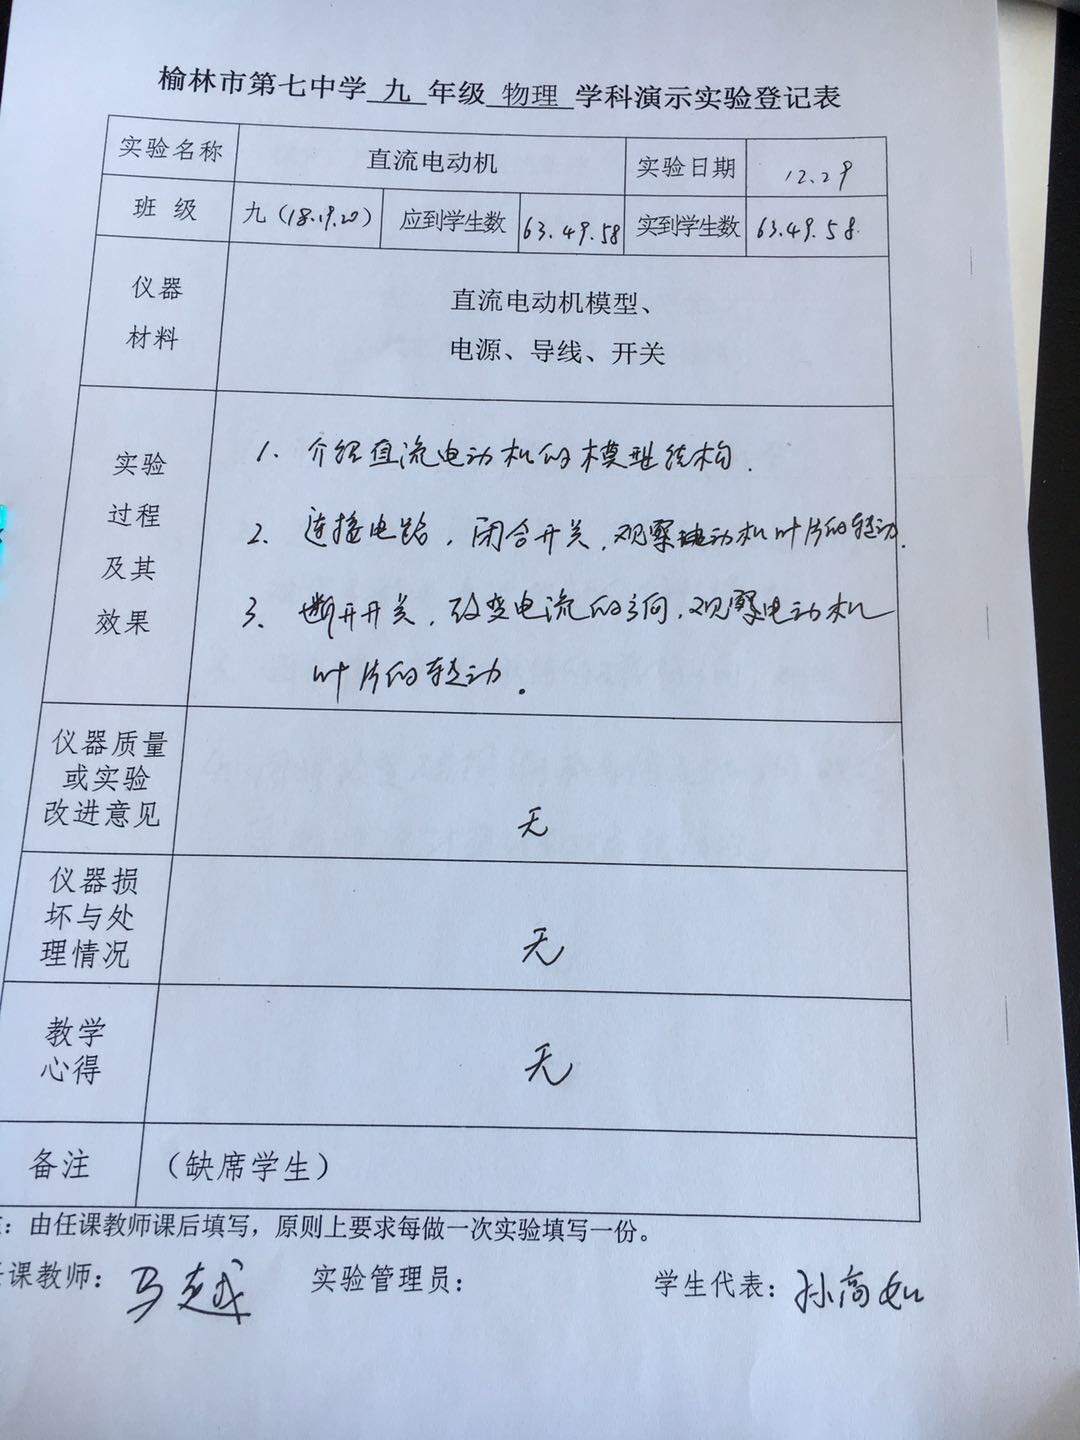 榆林市第七中学 九 年级 物理 学科演示实验登记表
实验名称 直流电动机 实验日期 12.29
班 级 九（18.19.20） 应到学生数 63.49.58 实到学生数 63.49.58.
仪器
材料
直流电动机模型、
电源、导线、开关
实验
过程
及其
效果
1、介绍直流电动机的模型结构.
2、连接电路，闭合开关，观察电动机叶片的转动.
3、断开开关，改变电流的方向，观察电动机
叶片的转动。
仪器质量
或实验
改进意见
无
仪器损
坏与处
理情况
无
教学
心得
无
备注 （缺席学生）
：由任课教师课后填写，原则上要求每做一次实验填写一份。
课教师：马越 实验管理员： 学生代表：孙高如